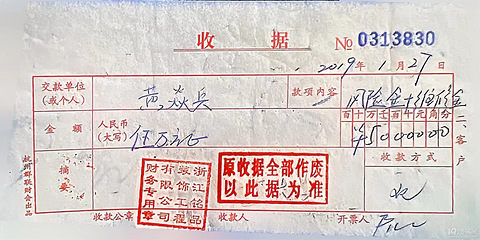 收 据 № 0313830
2019年1月27日
交款单位(或个人) 黄焱兵 款项内容 风险金+维修金
金额 人民币(大写) 伍万元正 百十万千百十元角分
¥5000000
摘要 收款方式
原收据全部作废
以此据为准
浙江铭品
装饰工程
有限公司
财务专用章
收款公章 收款人 开票人
二、客户
杭州群联财会出品